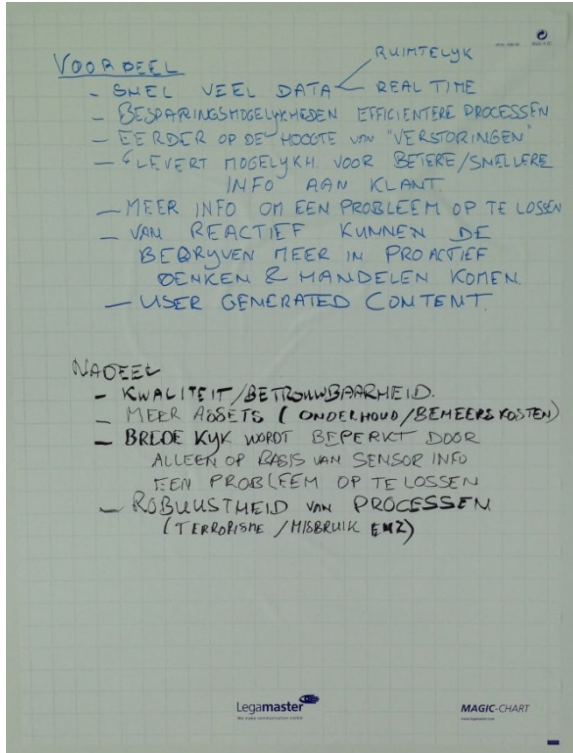 RUIMTELYK
VOORDEEL
- SNEL VEEL DATA < REAL TIME
- BESPARINGSMOGELYKHEDEN EFFICIENTERE PROCESSEN
- EERDER OP DE HOOGTE VAN "VERSTORINGEN"
- LEVERT MOGELYKH. VOOR BETERE/SNELLERE
INFO AAN KLANT.
- MEER INFO OM EEN PROBLEEM OP TE LOSSEN
- VAN REACTIEF KUNNEN DE
BEDRYVEN MEER IN PROACTIEF
DENKEN & HANDELEN KOMEN.
- USER GENERATED CONTENT.
NADEEL
- KWALITEIT/BETROUWBAARHEID.
- MEER ASSETS (ONDERHOUD/BEHEERSKOSTEN)
- BREDE KYK WORDT BEPERKT DOOR
ALLEEN OP BASIS VAN SENSOR INFO
EEN PROBLEEM OP TE LOSSEN
- ROBUUSTHEID VAN PROCESSEN
(TERRORISME/MISBRUIK ENZ)
Legamaster
MAGIC-CHART